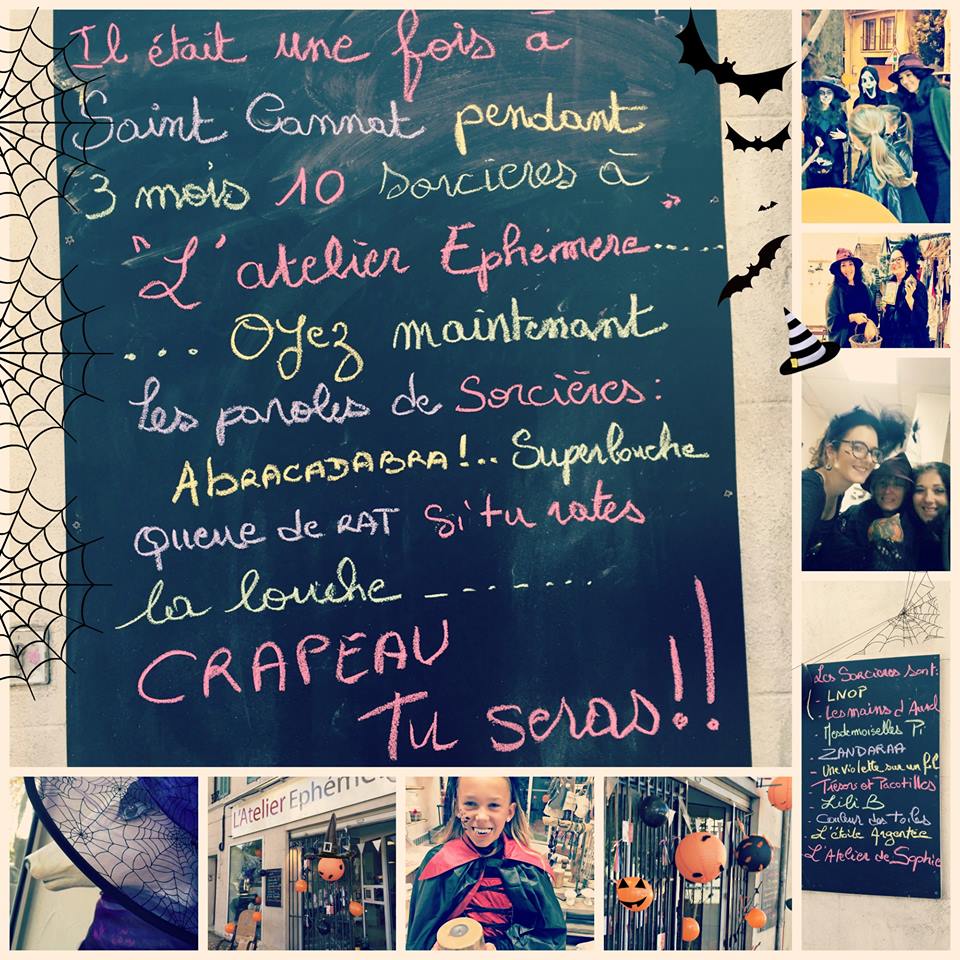 Il était une fois à
Saint Cannat pendant
3 mois 10 sorcieres à
"L'atelier Ephémere"....
.... Oyez maintenant
les paroles de Sorcières :
ABRACADABRA !.. Superlouche
Queue de RAT Si tu rates
la louche -------
CRAPEAU
Tu seras !!
Les Sorcieres sont :
- LNOP
- Les mains d'Aurel
- Mesdemoiselles Pi
ZANDARAA
- Une violette sur un fil
Trésors et Pacotilles
- Lili B
- Couleur des toiles
- L'étoile Argentée
L'Atelier de Sophie
L'Atelier Ephémè